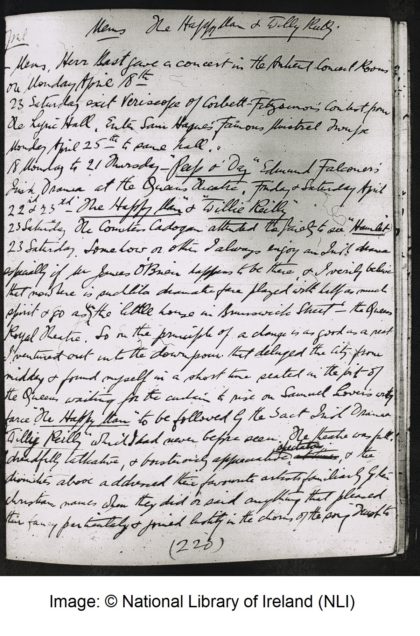 Mems The Happy Man & Willy Reilly.
- Mems. Herr Mast gave a concert in the Antient Concert Rooms
on Monday April 18th
23 Saturday exit Veriscope of Corbett-Fitzsimmons Contest from
the Lyric Hall. Enter Sam Hagues Famous Minstrel Troupe
Monday April 25th to same hall.
18 Monday to 21 Thursday - "Peep o' Day" Edmund Falconer's
Irish Drama at the Queens Theatre, Friday & Saturday April
22d & 23rd "The Happy Man" & "Willie Reilly"
23 Saturday The Countess Cadogan attended the to see "Hamlet"
23 Saturday. Somehow or other I always enjoy an Irish drama
especially if Mr James O'Brien happens to be there, & I verily believe
that nowhere is such like dramatic fare played with half as much
spirit & go as the little house in Brunswick Street - the Queens
Royal Theatre. So on the principle of a change is as good as a rest
I ventured out into the downpour that deluged the city from
midday & found myself in a short time seated in the pit of
the Queens waiting for the curtain to rise on Samuel Lovers witty
farce "The Happy Man" to be followed by the 3 act Irish Drama
"Willie Reilly" which I had never before seen. The theatre was full,
dreadfully talkative, & boisterously appreciative, & the
divinities above addressed their favourite artists familiarly by their
christian names when they did or said anything that pleased
their fancy particularly & joined lustily in the chorus of the song
(226)
Image: © National Library of Ireland (NLI)